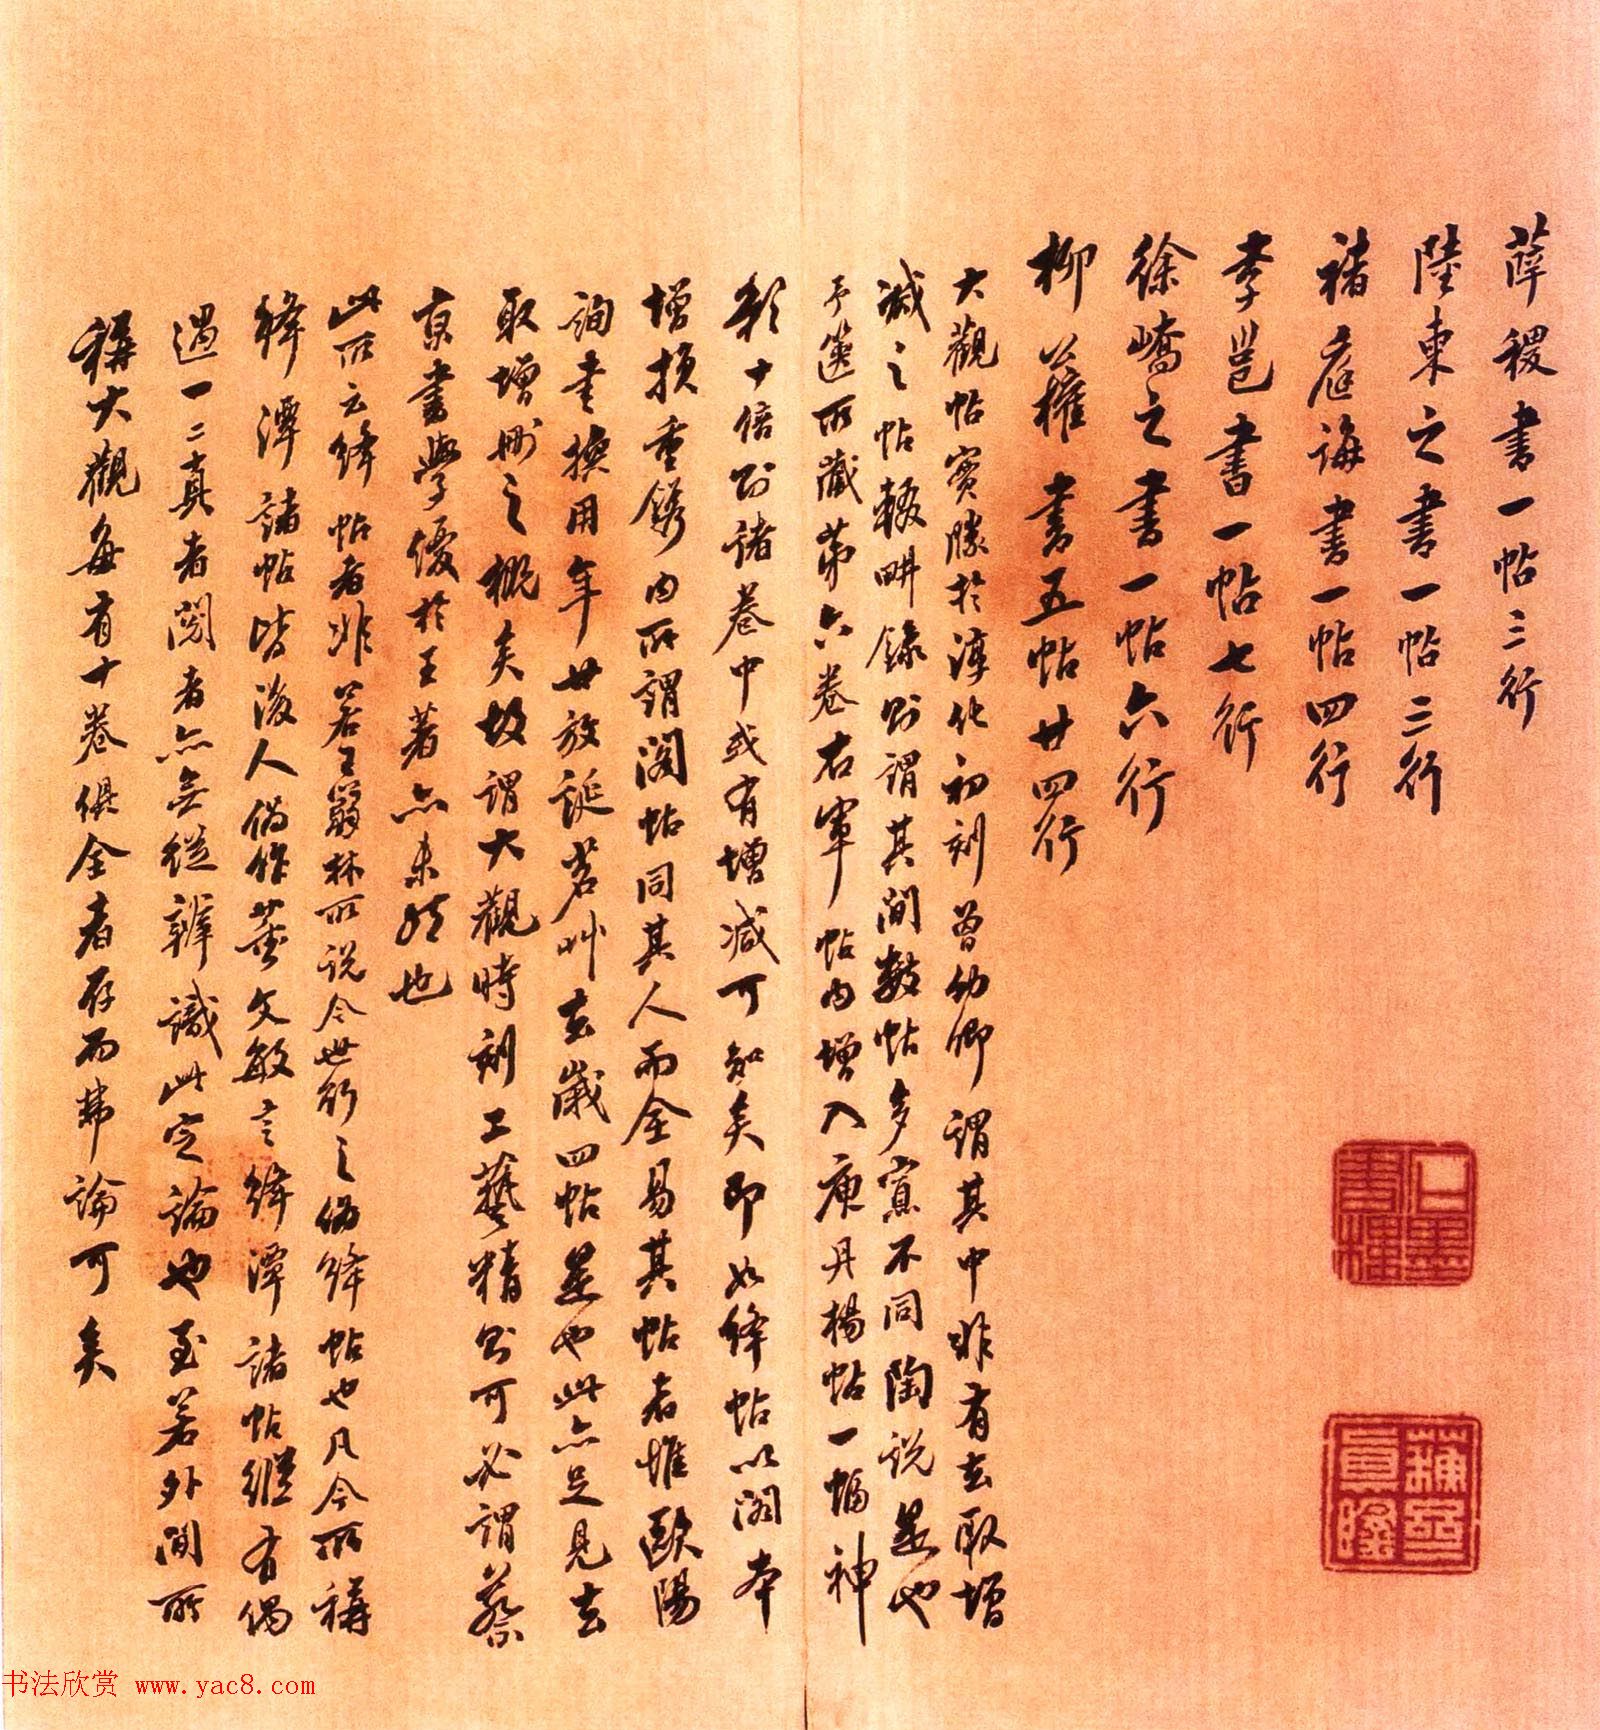 薛稷書一帖三行
陸柬之書一帖三行
褚庭誨書一帖四行
李邕書一帖七行
徐嶠之書一帖六行
柳公權書五帖廿四行
大觀帖實勝於淳化初刻曾幼卿謂其中非有去取增
減之帖輟畊錄則謂其間數帖多寡不同陶說是也
予篋所藏第六卷右軍帖內增入庾丹楊帖一幅神
彩十倍則諸卷中或有增減可知矣即如絳帖以閣本
增損重鐫內所謂閣帖同其人而全易其帖者惟歐陽
詢書換用年廿放誕茗艸去歲四帖是也此亦足見去
取增刪之概矣故謂大觀時刻工藝精則可必謂蔡
京書學優於王著亦未然也
此所云絳帖者非若王蒻林所說今世所行之偽絳帖也凡今所稱
絳潭諸帖皆後人偽作董文敏言絳潭諸帖縱有偶
遇一二真者閱者亦無從辨識此定論也至若外間所
稱大觀每有十卷俱全者存而弗論可矣
书法欣赏 www.yac8.com